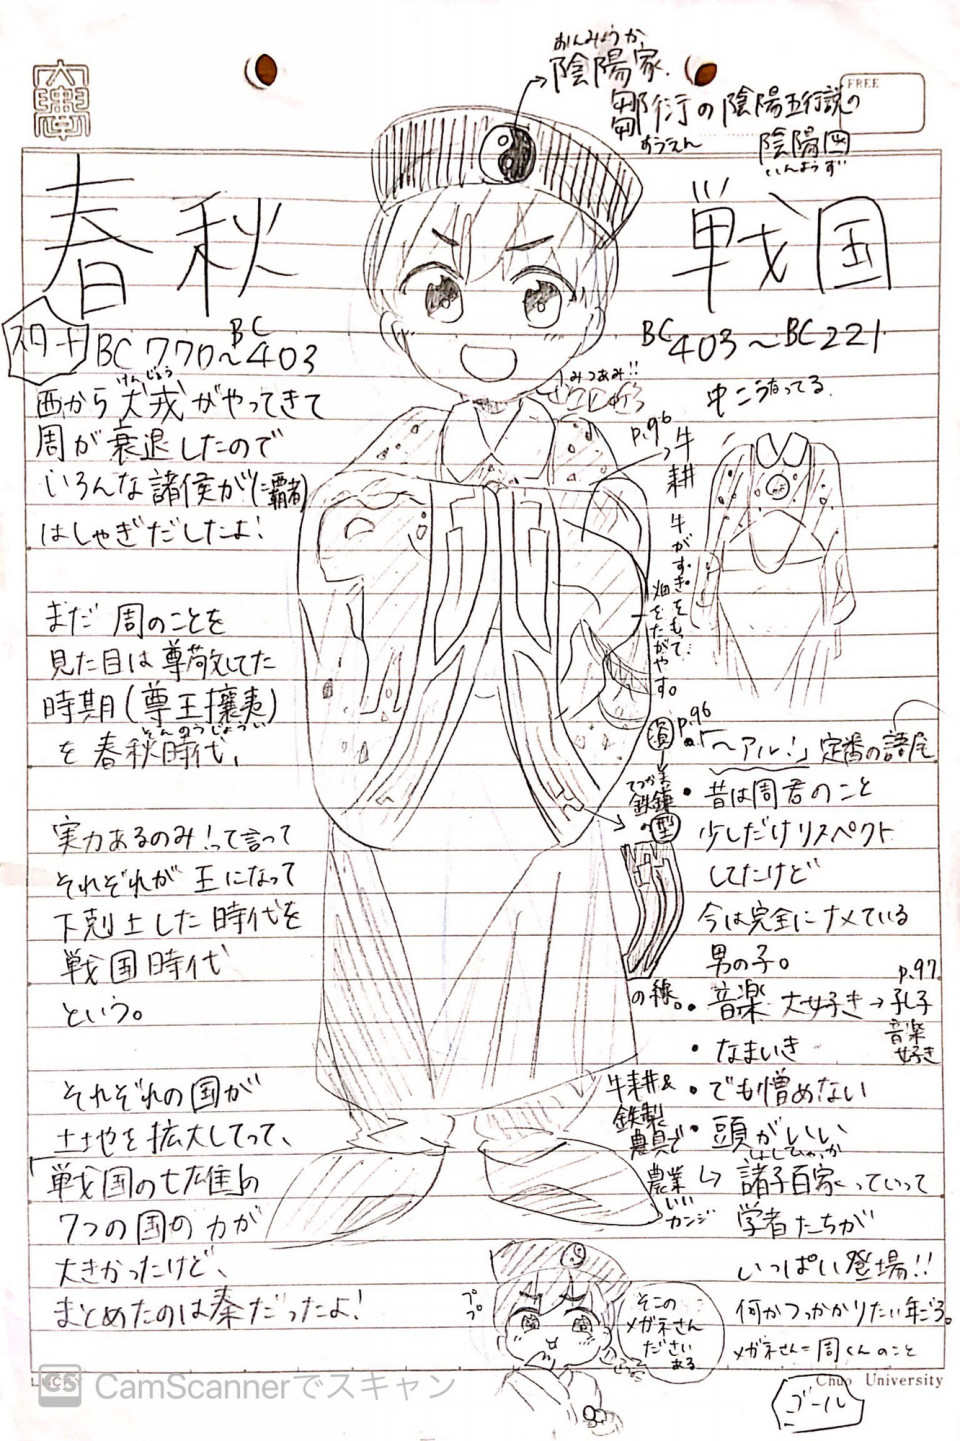 おんみょうか
陰陽家
鄒衍の陰陽五行説の
すうえん
陰陽図
いんようず
FREE
大學
春秋
戦国
スタート
BC770~BC403
BC403~BC221
西から犬戎がやってきて
けんじゅう
周が衰退したので
いろんな諸侯が(覇者)
はしゃぎだしたよ!
まだ周のことを
見た目は尊敬してた
時期(尊王攘夷)
そんのうじょうい
を春秋時代、
実力あるのみ!って言って
それぞれが王になって
下剋上した時代を
戦国時代
という。
それぞれの国が
土地を拡大してって、
「戦国の七雄」の
7つの国の力が
大きかったけど、
まとめたのは秦だったよ!
みつあみ!!
中こうなってる
p.96
牛耕
牛がすきをもって
畑をたがやす。
p.96
・「~アル!」定番の語尾
・昔は周君のこと
少しだけリスペクト
してたけど
今は完全にナメている
男の子。
・音楽大好き→孔子
p.97
音楽
好き
・なまいき
・でも憎めない
・頭がいい
しょしひゃっか
↳諸子百家っていって
学者たちが
いっぱい登場!!
の線。
牛耕&
鉄製
農具で
農業
いい
カンジ
ププ
そこの
メガネさん
ださい
ある
何かつっかかりたい年ごろ。
メガネさん=周くんのこと
ゴール
Chuo University
CS CamScannerでスキャン